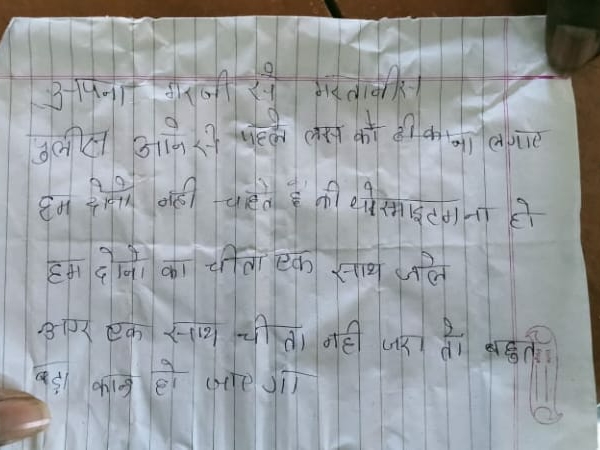 अपना मरजी से मरतावीस
पुलीस आने से पहले लास को ठीकाना लगाए
हम दोनो नही चाहते है की पोसमाइटम ना हो
हम दोनो का चीता एक साथ जले
अगर एक साथ चीता नही जरा तो बहुत
बड़ा कान्ड हो जाए गा